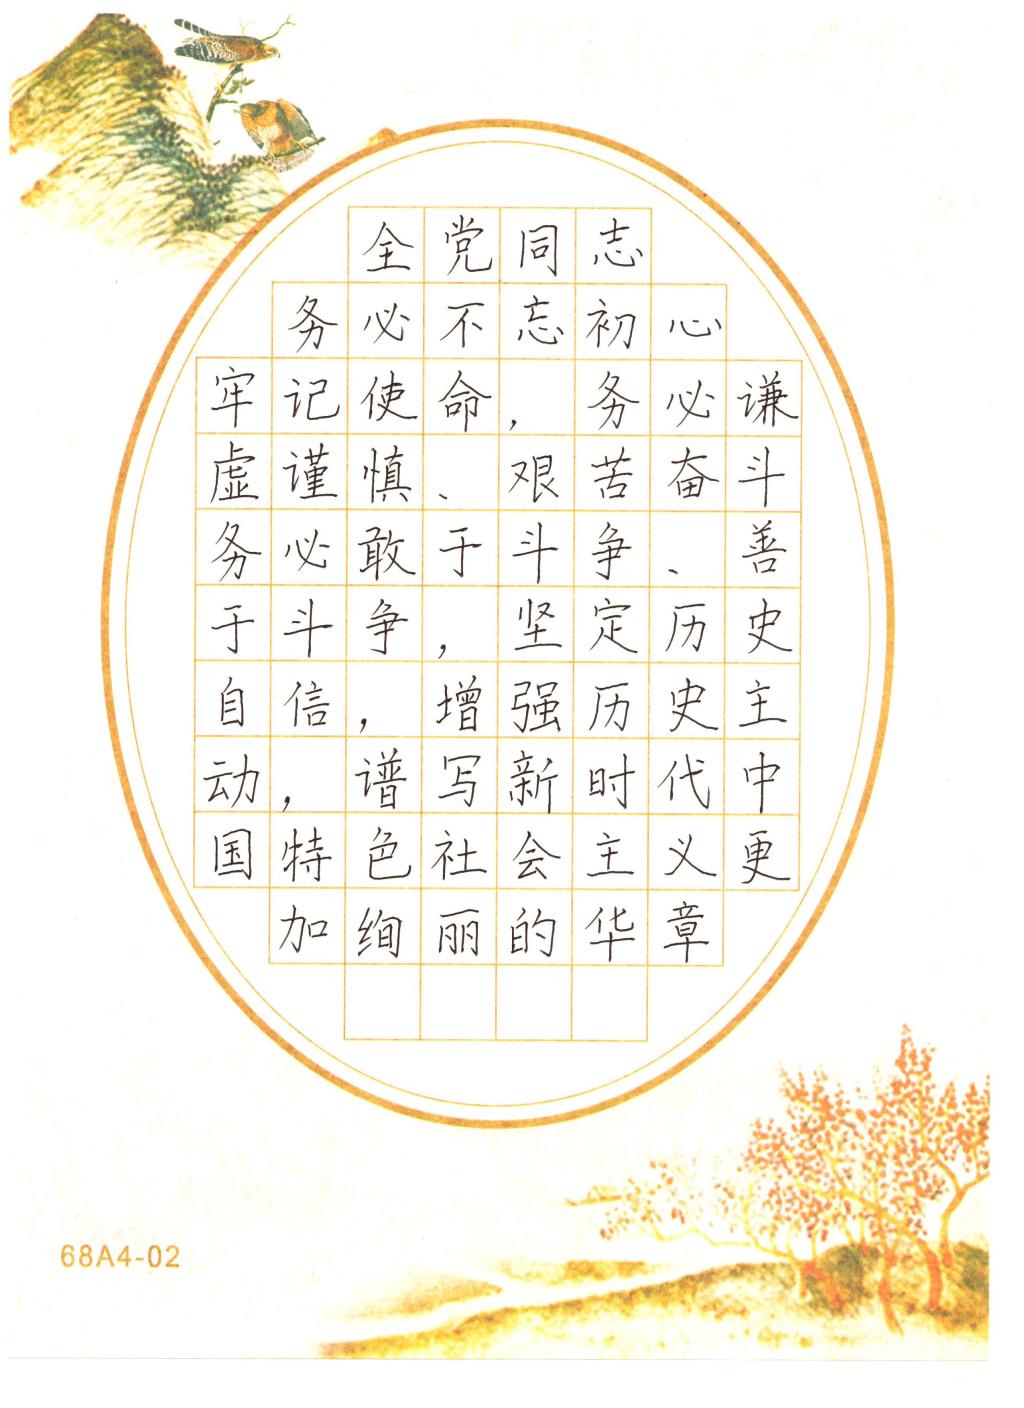 全党同志
务必不忘初心
牢记使命，务必谦
虚谨慎、艰苦奋斗
务必敢于斗争、善
于斗争，坚定历史
自信，增强历史主
动，谱写新时代中
国特色社会主义更
加绚丽的华章
68A4-02